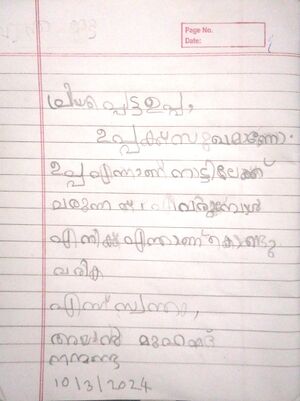 Page No.
Date:
പ്രിയപ്പെട്ട ഉപ്പ,
ഉപ്പക്ക് സുഖമാണോ.
ഉപ്പ എന്നാണ് നാട്ടിലേക്ക്
വരുന്നത് വരുമ്പോൾ
എനിക്ക് എന്താണ് കൊണ്ടു
വരിക
എന്ന് സ്വന്തം,
മുഹമ്മദ്
നന്മണ്ട
10/3/2024